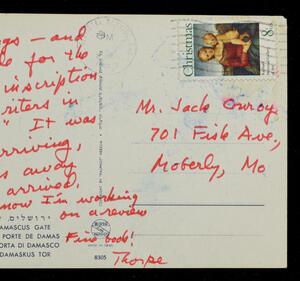 Christmas
8c
ngs — and
le for the
inscription
riters in
" It was
arriving,
as away
arrived.
now I'm working
on a review
Fine book!
Thorpe
Mr. Jack Conroy
701 Fisk Ave,
Moberly, Mo
ירושלים,
DAMASCUS GATE
PORTE DE DAMAS
PORTA DI DAMASCO
DAMASKUS TOR
8305